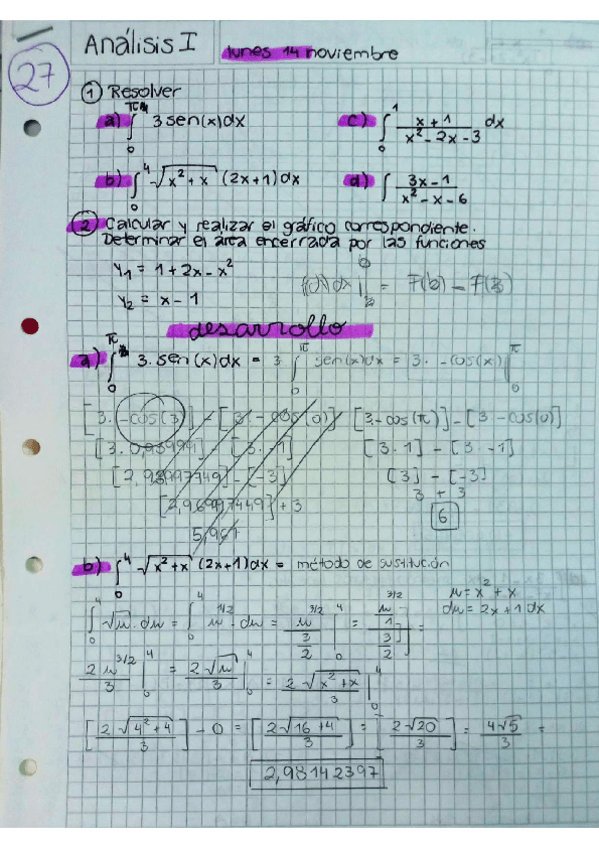 27
Análisis I
lunes 14 noviembre
① Resolver
a) ∫₀^π 3 sen(x)dx
c) ∫₀¹ (x+1)/(x²-2x-3) dx
b) ∫₀⁴ √(x²+x) (2x+1)dx
d) ∫ (3x-1)/(x²-x-6)
② Calcular y realizar el gráfico correspondiente.
Determinar el área encerrada por las funciones
y₁ = 1+2x-x²
y₂ = x-1
= F(b) - F(a)
desarrollo
a) ∫₀^π 3. sen(x)dx = 3 ∫₀^π sen(x)dx = 3. -cos(x) |₀^π
[3. -cos(3)] - [3. -cos(0)]
[3.-cos(π)] - [3 -cos(0)]
[3. 0,98999] - [3. -1]
[3.1] - [3. -1]
[2,96997449] - [-3]
[3] - [-3]
[2,96997449] + 3
3 + 3
5,967
6
b) ∫₀⁴ √(x²+x) (2x+1)dx = método de sustitución
u = x² + x
du = 2x+1 dx
∫₀⁴ √u . du = ∫₀⁴ u^(1/2) . du = u^(3/2)/(3/2) |₀⁴ = [(u^(3/2)/1)/(3/2)] =
2u^(3/2)/3 |₀⁴ = 2√u/3 |₀⁴ = 2√(x²+x)/3 |₀⁴
[2√(4²+4)/3] - 0 = [2√(16+4)/3] = [2√20/3] = 4√5/3 =
2,98142397